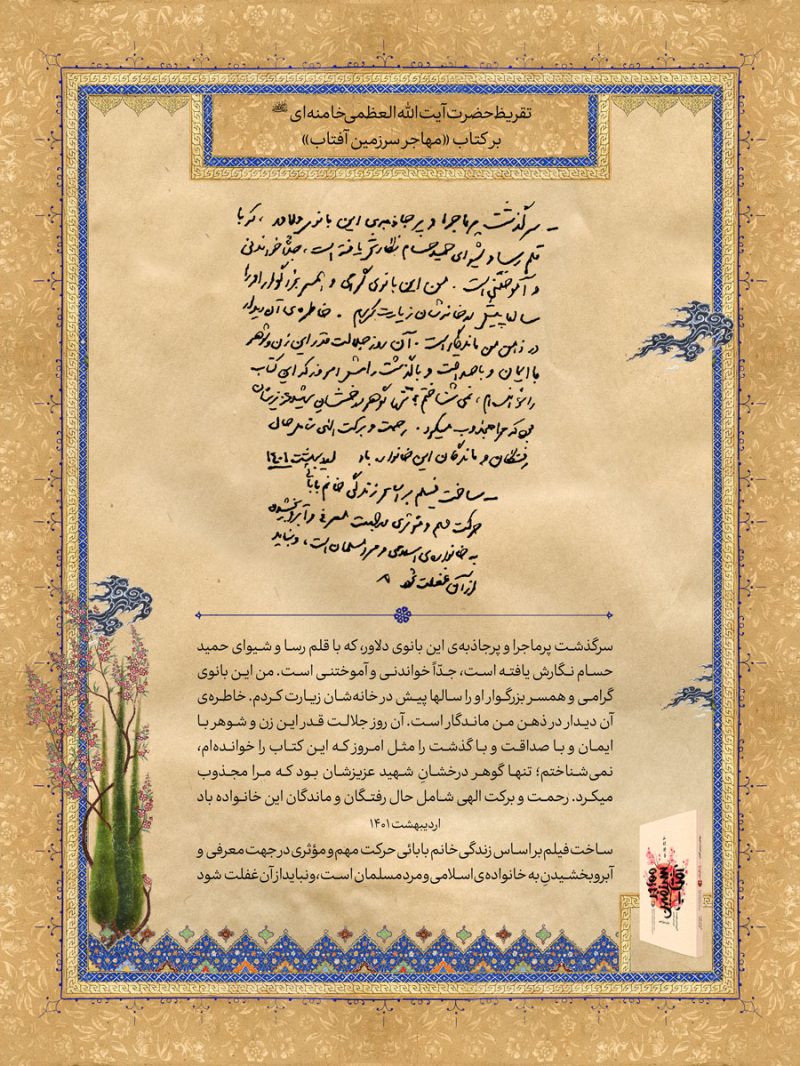 تقریظ حضرت آیت‌الله‌العظمی خامنه‌ای
بر کتاب «مهاجر سرزمین آفتاب»
- سرگذشت پرماجرا و پرجاذبه‌ی این بانوی دلاور، که با
قلم رسا و شیوای حمید حسام نگارش یافته است، جدّاً خواندنی
و آموختنی است. من این بانوی گرامی و همسر بزرگوار او را
سالها پیش در خانه‌شان زیارت کردم. خاطره‌ی آن دیدار
در ذهن من ماندگار است. آن روز جلالت قدر این زن و شوهر
با ایمان و با صداقت و با گذشت را مثل امروز که این کتاب
را خوانده‌ام، نمی‌شناختم؛ تنها گوهر درخشان شهید عزیزشان
بود که مرا مجذوب میکرد. رحمت و برکت الهی شامل حال
رفتگان و ماندگان این خانواده باد اردیبهشت ۱۴۰۱
- ساخت فیلم بر اساس زندگی خانم بابائی
حرکت مهم و مؤثری در جهت معرفی و آبروبخشیدن
به خانواده‌ی اسلامی و مرد مسلمان است، و نباید
از آن غفلت شود
سرگذشت پرماجرا و پرجاذبه‌ی این بانوی دلاور، که با قلم رسا و شیوای حمید
حسام نگارش یافته است، جدّاً خواندنی و آموختنی است. من این بانوی
گرامی و همسر بزرگوار او را سالها پیش در خانه‌شان زیارت کردم. خاطره‌ی
آن دیدار در ذهن من ماندگار است. آن روز جلالت قدر این زن و شوهر با
ایمان و با صداقت و با گذشت را مثل امروز که این کتاب را خوانده‌ام،
نمی‌شناختم؛ تنها گوهر درخشانِ شهید عزیزشان بود که مرا مجذوب
میکرد. رحمت و برکت الهی شامل حال رفتگان و ماندگان این خانواده باد
اردیبهشت ۱۴۰۱
ساخت فیلم بر اساس زندگی خانم بابائی حرکت مهم و مؤثری در جهت معرفی و
آبروبخشیدن به خانواده‌ی اسلامی و مرد مسلمان است، و نباید از آن غفلت شود